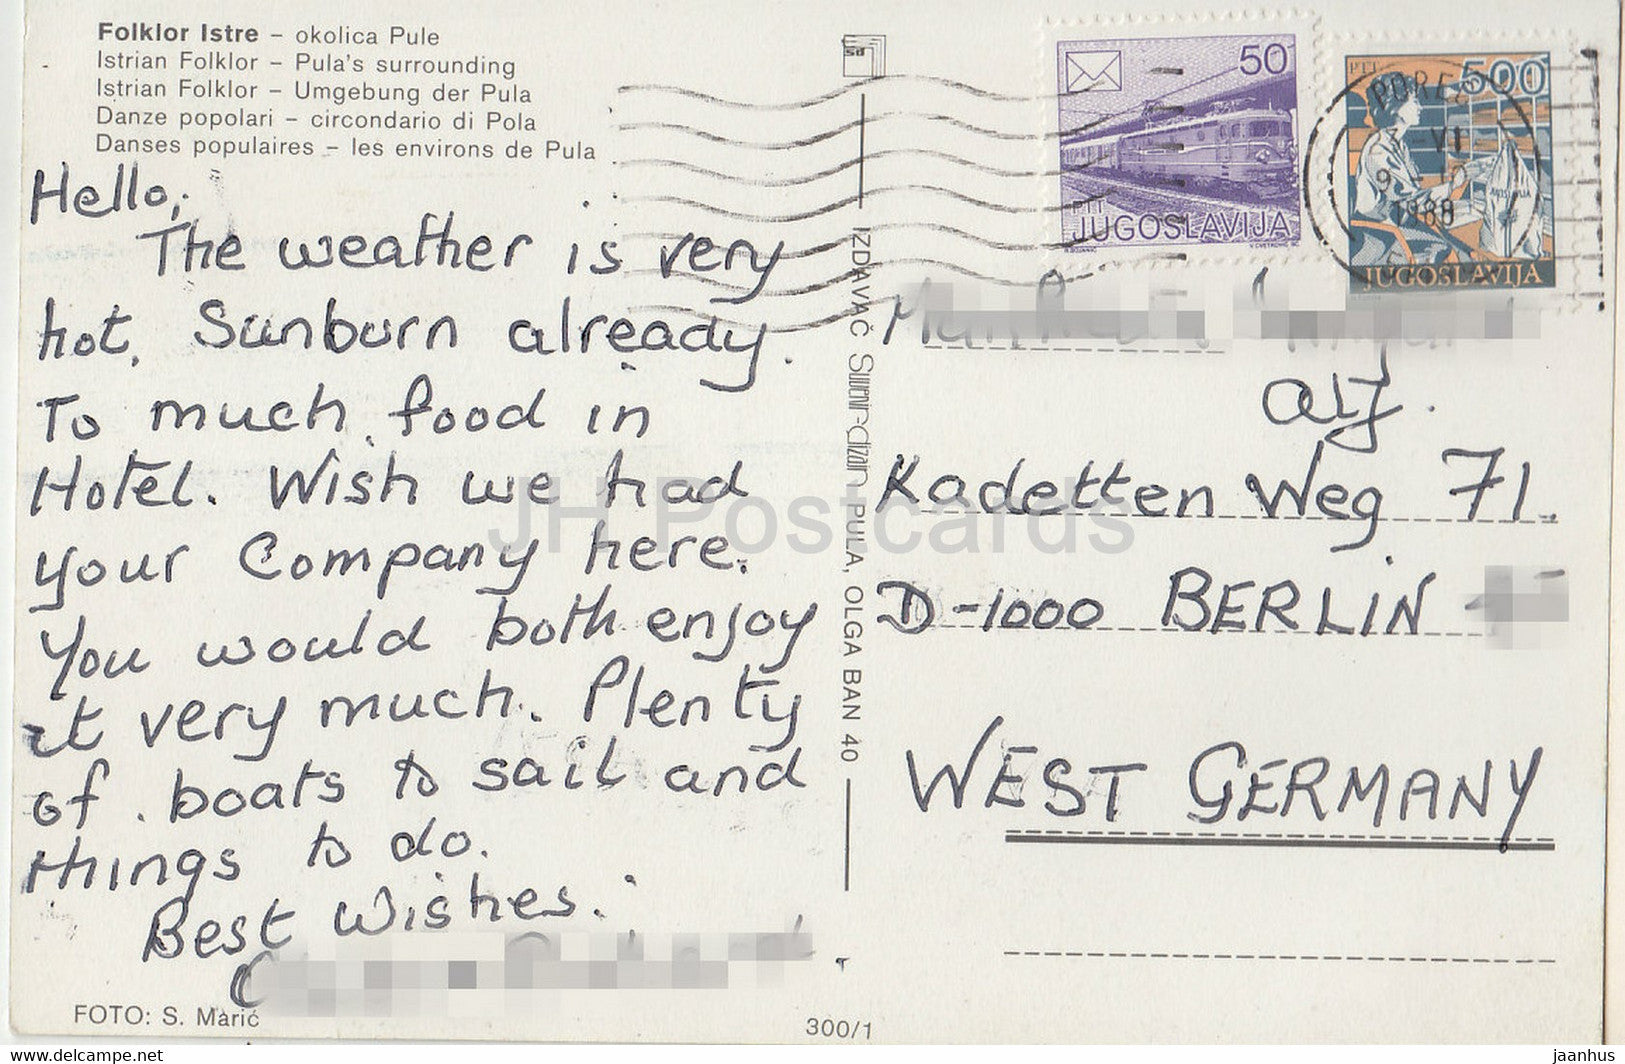 Folklor Istre – okolica Pule
Istrian Folklor – Pula's surrounding
Istrian Folklor – Umgebung der Pula
Danze popolari – circondario di Pola
Danses populaires – les environs de Pula
Hello,
The weather is very
hot. Sunburn already.
To much food in
Hotel. Wish we had
your Company here.
You would both enjoy
it very much. Plenty
of boats to sail and
things to do.
Best Wishes.
FOTO: S. Marić
300/1
IZDAVAČ Suvenir-dizajn PULA, OLGA BAN 40
50
PTT
JUGOSLAVIJA
PTT
500
JUGOSLAVIJA
POREČ
VI
1988
Kadetten Weg 71.
D-1000 BERLIN
WEST GERMANY
JH Postcards
www.delcampe.net
jaanhus